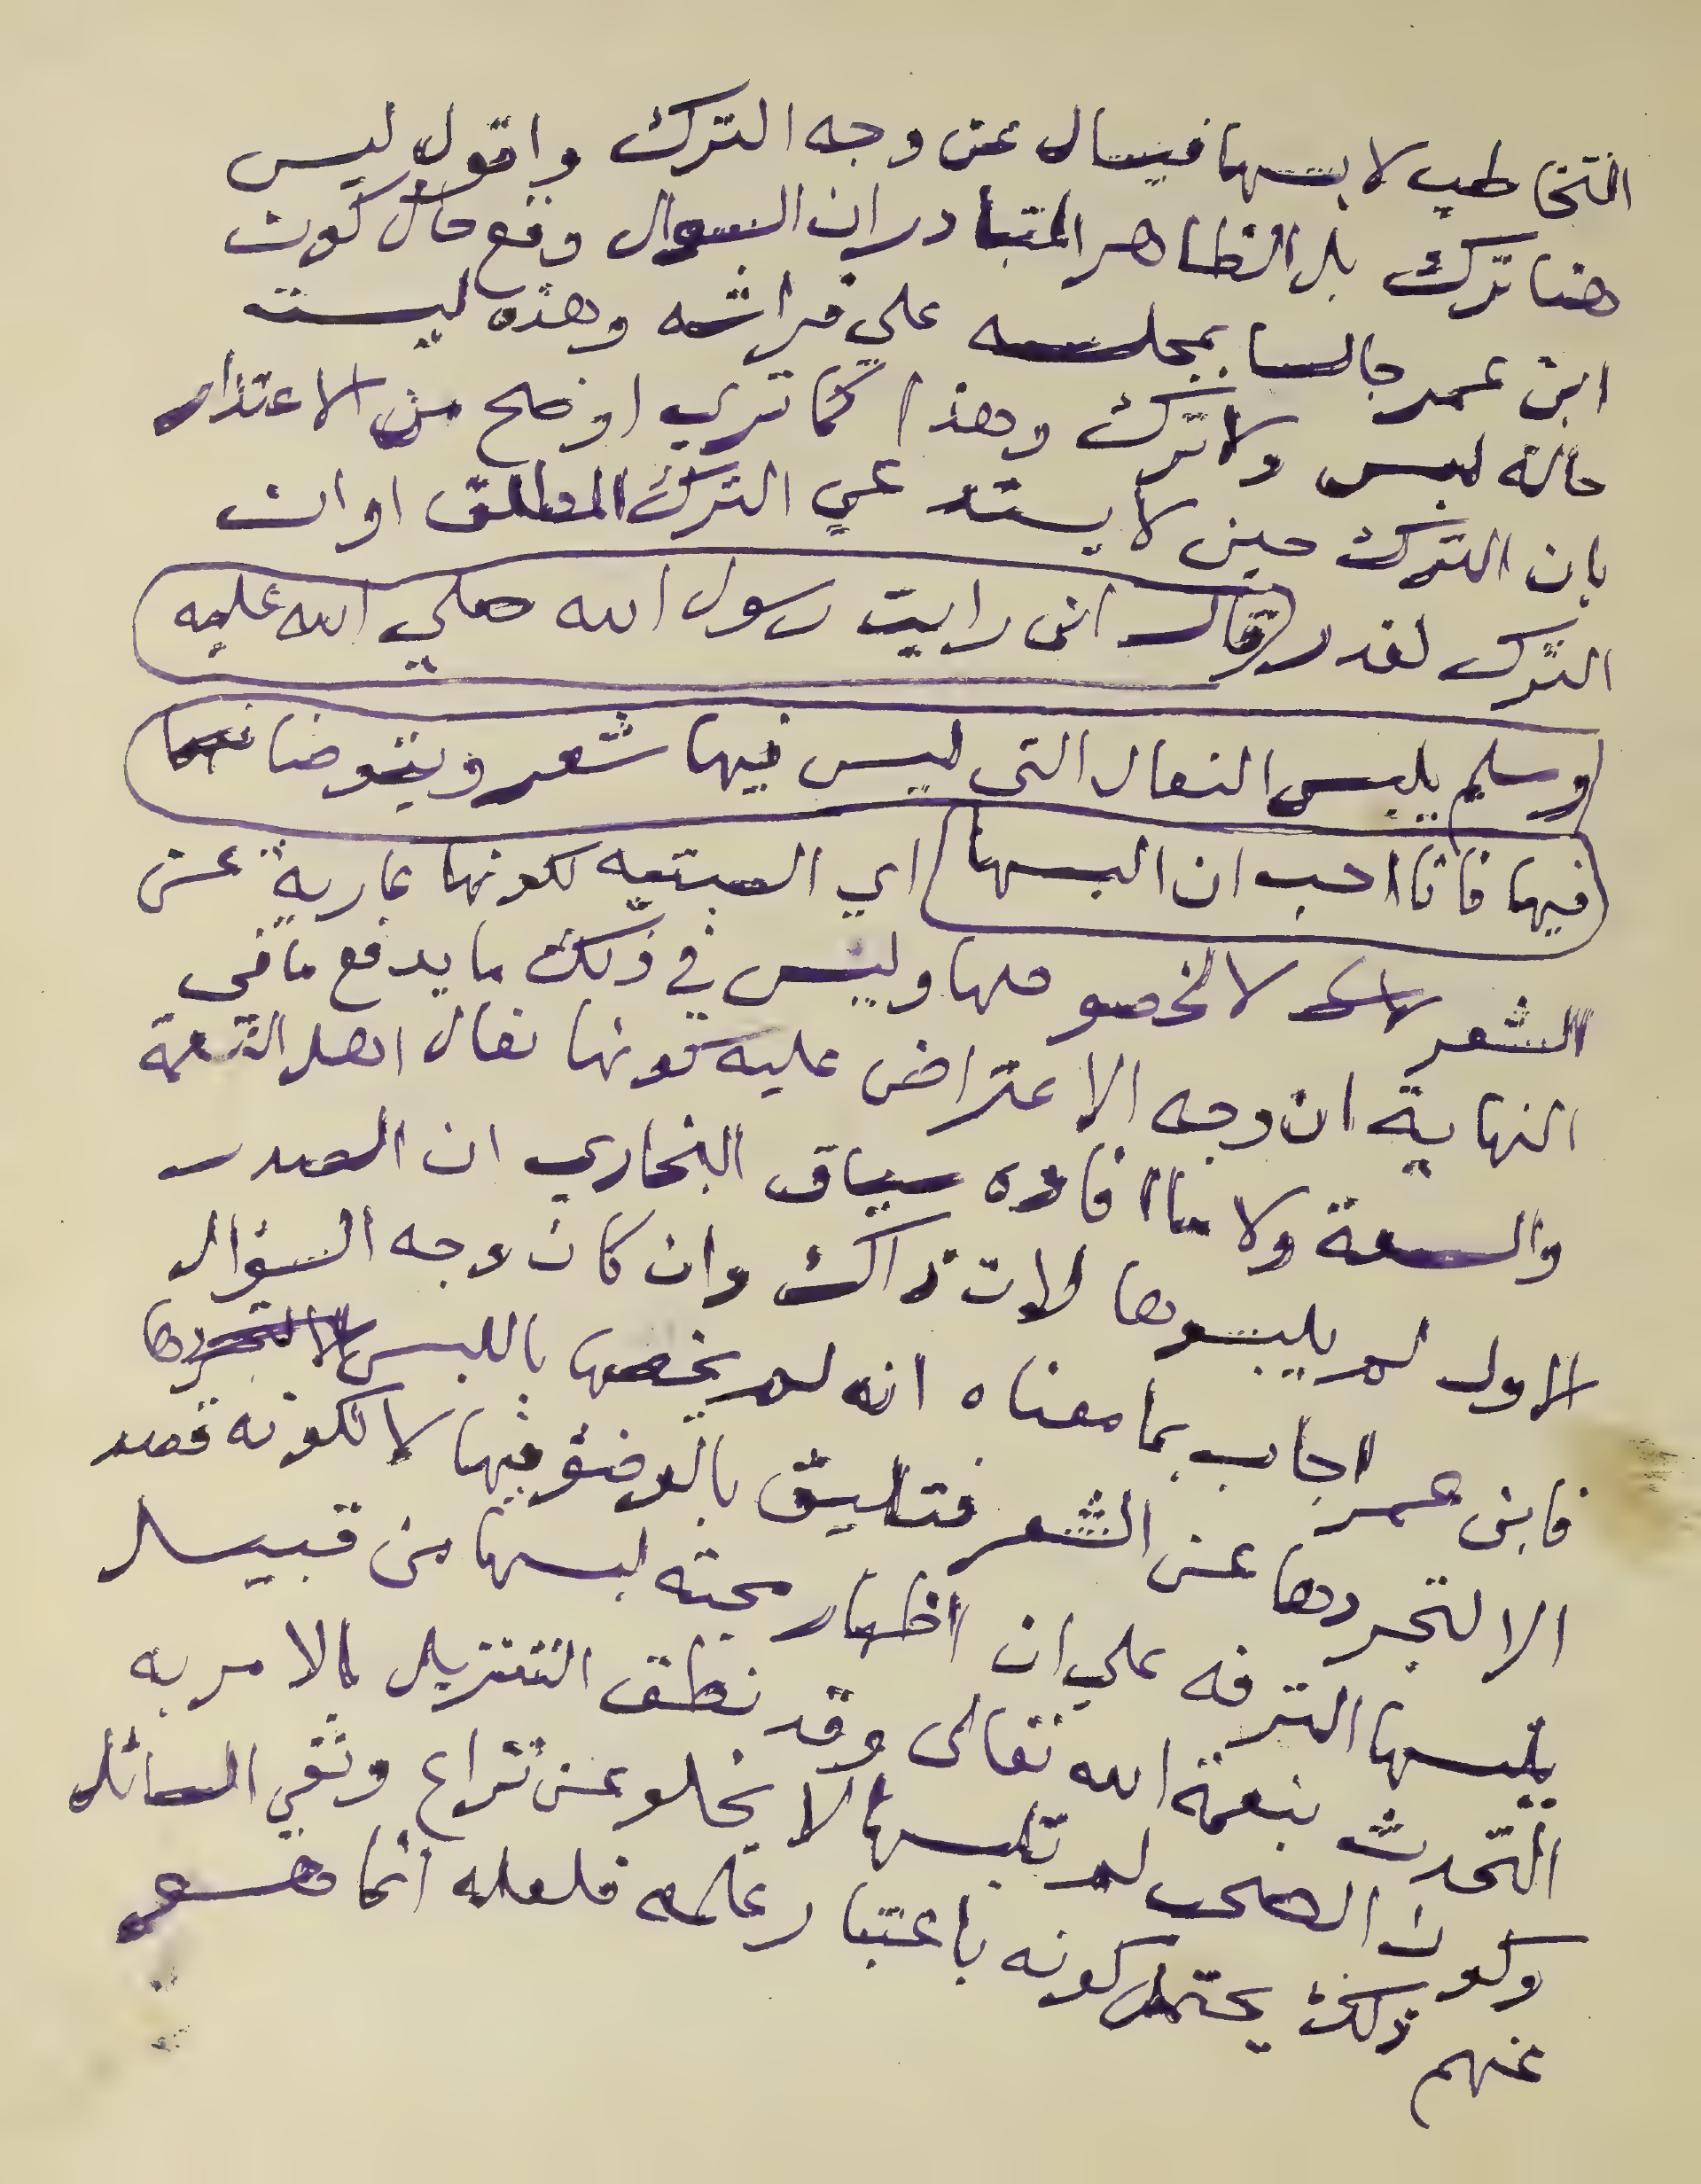 التخاطب لابسها فيسال عن وجه الترك واقول ليس
هنا ترك بل الظاهر المتبادر ان السوال وقع حال كون
ابن عمر جالسا بمجلسه علي فراشه وهذه ليست
حالة لبس ولا ترك وهذا كما تري اوضح من الاعتذار
بان الترك حين لا يستدعي الترك المطلق او ان
الترك لعذر قال اني رايت رسول الله صلي الله عليه
وسلم يلبس النعال التي ليس فيها شعر ويتوضا
فيها فانا احب ان البسها اي السبتيه لكونها عارية عن
الشعر لا لخصوصها وليس في ذلك ما يدفع ما في
النهاية ان وجه الاعتراض عليه كونها نعال اهل النعمة
والسعة ولا ما افاده سياق البخاري ان الصدر
الاول لم يلبسوها لان ذاك وان كان وجه السؤال
فابن عمر اجاب بما معناه انه لم يخصها باللبس
الا لتجردها عن الشعر فتليق بالوضؤ فيها لا لكونه قصد
بلبسها الترفه علي ان اظهار محبته لبسها من قبيل
التحدث بنعمة الله تعالى وقد نطق التنزيل بالامر به
وكون الصحب لم تلبسها لا يخلو عن نزاع ونفي السائل
عنهم ذلك يحتمل كونه باعتبار علمه فلعله انما هو